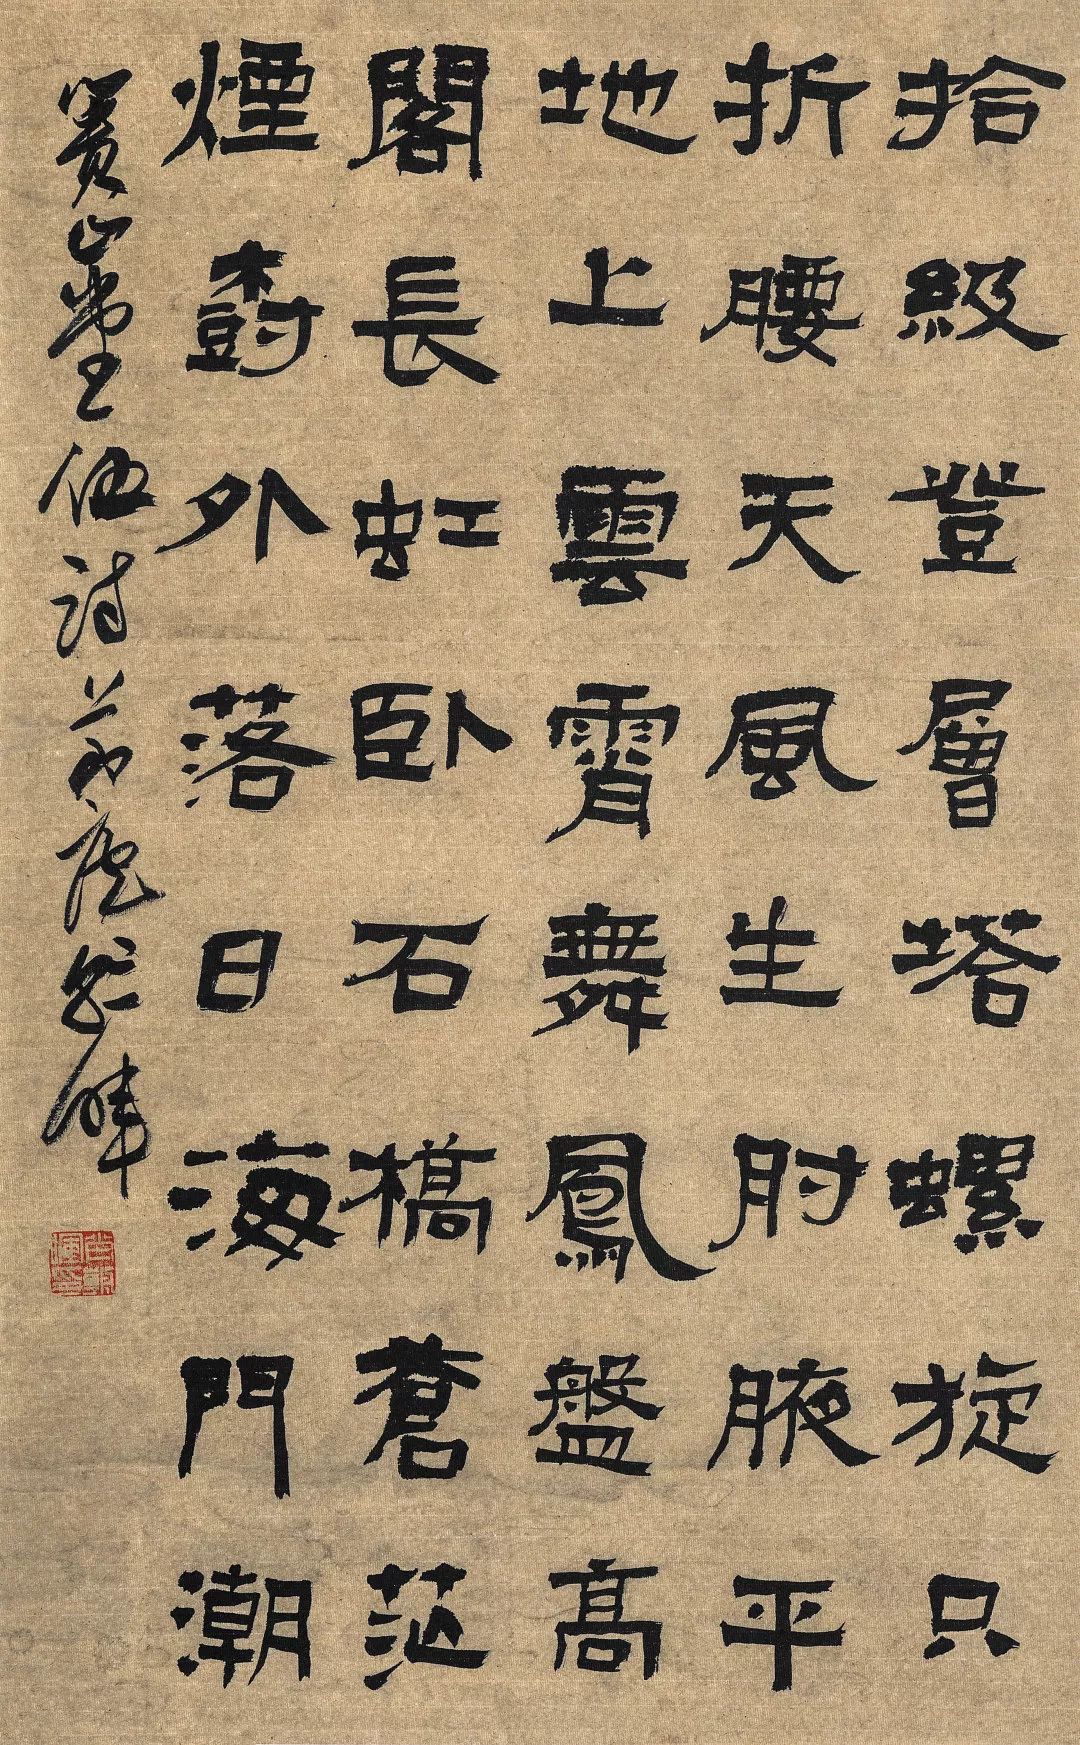 拾級登層塔螺旋只
折腰天風生肘腋平
地上雲霄舞鳳盤高
閣長虹卧石橋蒼茫
煙樹外落日海門潮
山堂主詩